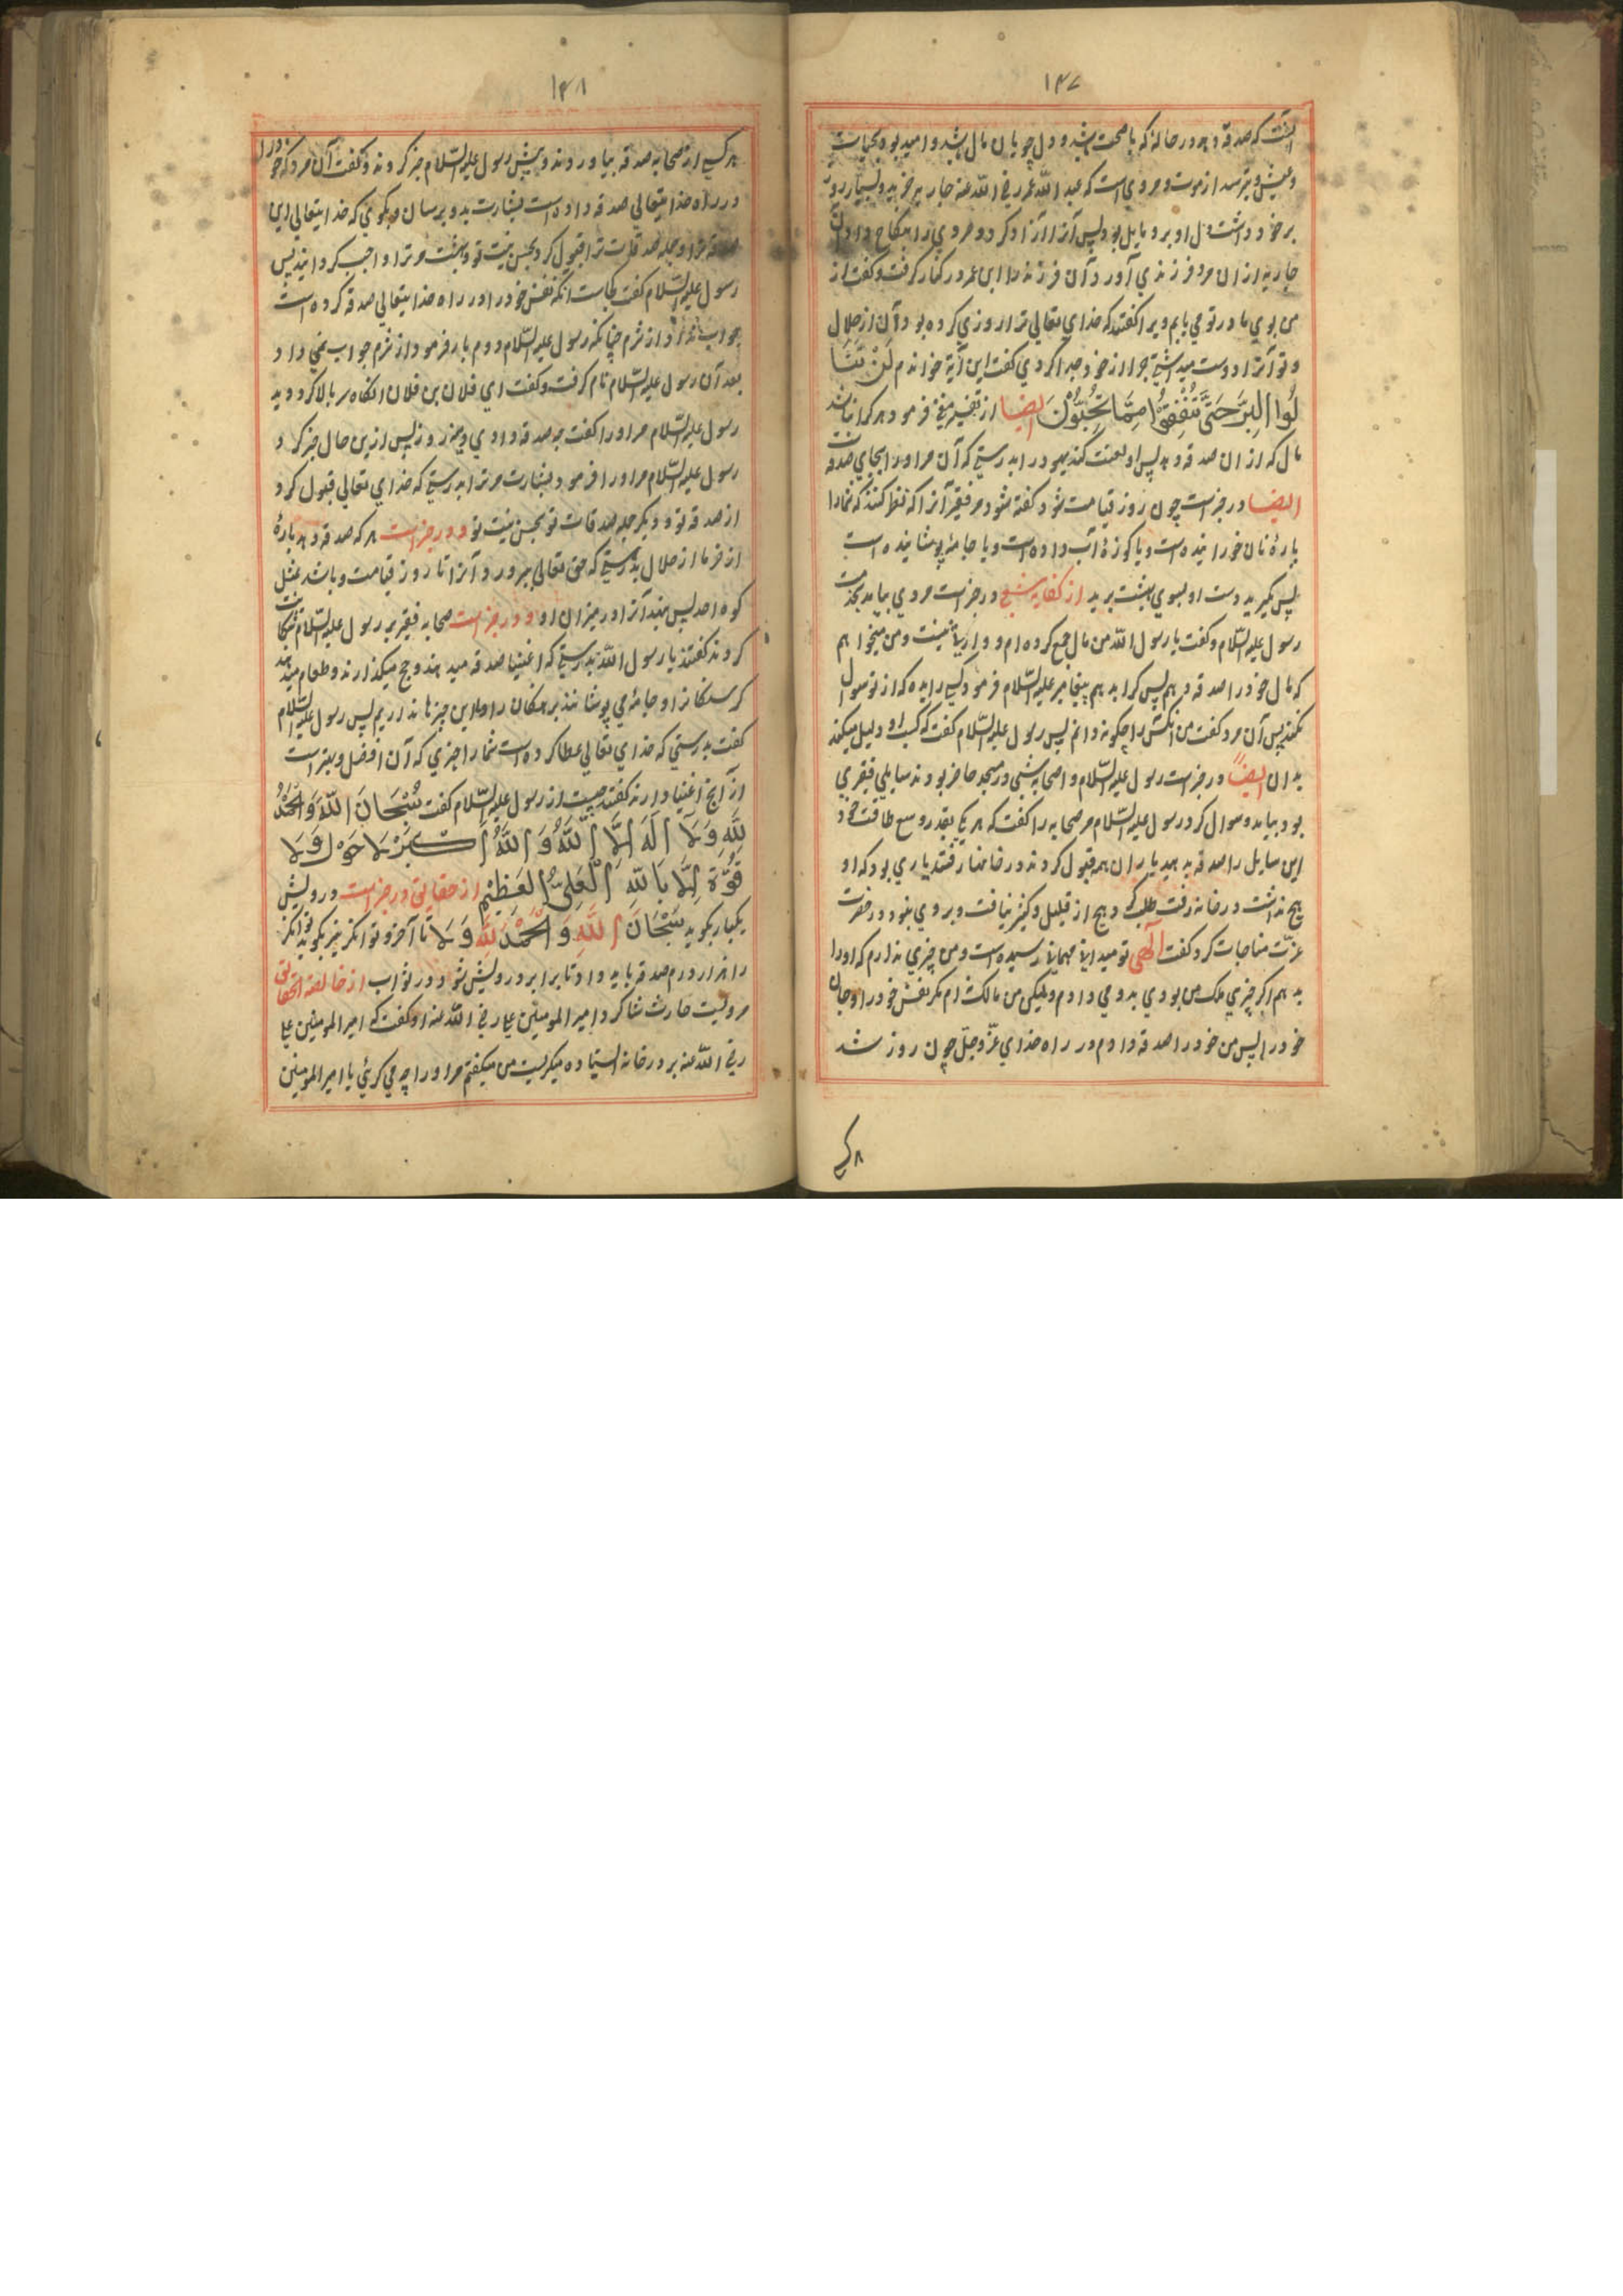 ۱۴۷
آنست که صدقه دهد در حالة که با صحت باشد و دل جویان مال باشد و امید بود بحیات
و عیش و بترسد از موت و مروی است که عبد الله عمر رضی الله عنه جاریه خرید و بسیار روز
بر خود داشت و دل او برو مایل بود پس آنرا آزاد کرد و مردی را بنکاح داد آن
جاریه ازان مرد فرزندی آورد آن فرزند را ابن عمر در کنار گرفت و گفت از
من بوی مادر تو می یابم ویرا گفتند که خدای تعالی ترا روزی کرده بود آن از حلال
و تو آنرا دوست میداشتی چرا از خود جدا کردی گفت این آیة خواندم لَنْ تَنَا
لُوا الْبِرَّ حَتَّى تُنْفِقُوا مِمَّا تُحِبُّونَ ایضا از تفسیر مغنی فرمود هر کرا نباشد
مال که ازان صدقه دهد پس او لعنت کند یهود را بدرستی که آن مر او را بجای صدقه است
ایضا در خبر است چون روز قیامت شود گفته شود مر فقیر آنرا که نظر کنند که شمارا
پارهٔ نان خورانیده است و یا کوزهٔ آب داده است و یا جامهٔ پوشانیده است
پس بگیرید دست او بسوی بهشت برید از کفایه شعبی در خبر است مردی بیامد بخدمت
رسول علیه السّلام و گفت یا رسول الله من مال جمع کرده ام و وارثی نیست و من میخواهم
که مال خود را صدقه دهم پس کرا بدهم پیغامبر علیه السّلام فرمود کسی را بده که از تو سوال
نکند پس آن مرد گفت من آنکس را چگونه دانم پس رسول علیه السّلام گفت که کسب او دلیل میکند
بدان ایضاً در خبر است رسول علیه السّلام و اصحابه شبی در مسجد حاضر بودند سایلی فقیری
بود بیامد و سوال کرد رسول علیه السّلام مر صحابه را گفت که هر یکی بقدر وسع طاقت خود
این سایل را صدقه بدهید یاران همه قبول کردند و در خانها رفتند یاری بود که او
هیچ نداشت در خانه رفت طلب کرد هیچ از قلیل و کثیر نیافت و بروی بنود در حضرت
عزّت مناجات کرد گفت الٰهی تو میدانی مهمانی رسیده است و من چیزی ندارم که او را
بدهم اگر چیزی ملک من بودی بدو می دادم ولیکن من مالک نه ام مگر نفس خود را و جان
خود را پس من خود را صدقه دادم در راه خدای عزّ و جلّ چون روز شد
هر کسی
۱۴۸
هر کسی از صحابه صدقه بیاوردند و پیش رسول علیه السّلام خبر کردند و گفت آن مرد که خود را
در راه خدایتعالی صدقه داده است بشارت بدو برسان و بگوی که خدایتعالی این
صدقه ترا و جمله صدقات ترا قبول کرد بحسن نیت تو و بهشت مر ترا واجب گردانید پس
رسول علیه السّلام گفت کجاست آنکه نفس خود را در راه خدایتعالی صدقه کرده است
جواب نداد از شرم چنانکه رسول علیه السّلام دوم بار فرمود از شرم جواب نمی داد
بعد آن رسول علیه السّلام نام گرفت و گفت ای فلان بن فلان آنگاه سر بالا کرد و دید
رسول علیه السّلام مر او را گفت چه صدقه دادی دیروز پس ازین حال خبر کرد
رسول علیه السّلام مر او را فرمود بشارت مر ترا بدرستی که خدای تعالی قبول کرد
از صدقه تو و دیگر جمله صدقات تو بحسن نیت تو و در خبر است هر که صدقه دهد پارهٔ
از خرما از حلال بدرستی که حق تعالی بپرورد آنرا تا روز قیامت و باشد مثل
کوه احد پس بنهد آنرا در میزان او و در خبر است صحابه فقیر بر رسول علیه السّلام شکایت
کردند گفتند یا رسول الله بدرستی که اغنیا صدقه میدهند و حج میگذارند و طعام میدهند
گرسنگانرا و جامه می پوشانند برهنگان را و ما این چیزها نداریم پس رسول علیه السّلام
گفت بدرستی که خدای تعالی عطا کرده است شما را چیزی که آن افضل و بهتر است
از آنچ اغنیا دارند گفتند چیست آن رسول علیه السّلام گفت سُبْحَانَ اللّهِ وَالْحَمْدُ
لِلّهِ وَلَا اِلَهَ اِلَّا اللّهُ وَ اللّهُ اَكْبَرْ لَا حَوْل وَلَا
قُوَّةَ اِلَّا بِاللّهِ الْعَلِيِّ الْعَظِيْمِ از حقایق در خبر است درویش
یکبار بگوید سُبْحَانَ اللّهِ وَ الْحَمْدُ لِلّهِ وَ لَا تا آخر و توانگر نیز بگوید توانگر
را هزار درم صدقه باید داد تا برابر درویش شود در ثواب از خالصة الحقایق
مرویست حارث شاگرد امیر المومنین علی رضی الله عنه او گفت که امیر المومنین علی
رضی الله عنه بر در خانه استاده میگریست من میگفتم مر او را چه می گریی یا امیر المومنین